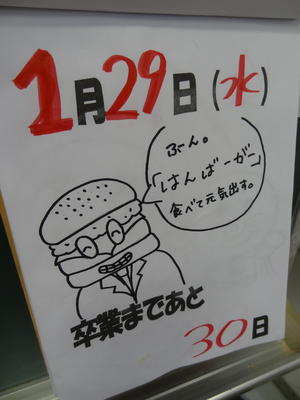 1月29日(水)
ぶん。
「はんばーがー」
食べて元気出す。
卒業まであと
30日